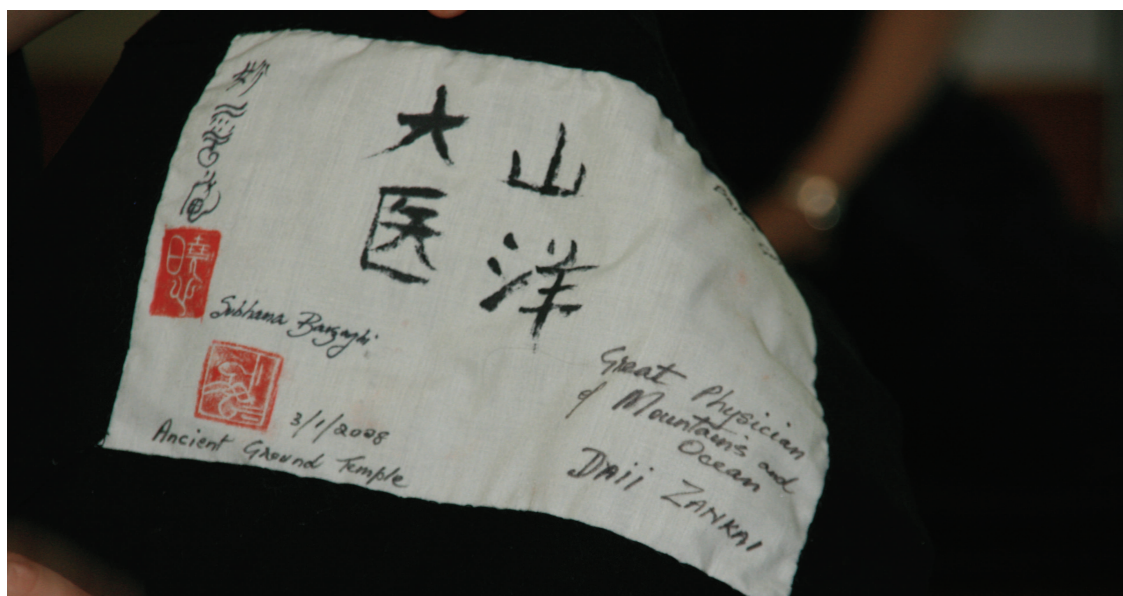 山洋
大医
Subhana Barzaghi
3/1/2008
Ancient Ground Temple
Great Physician
of Mountains and
Ocean
DAii ZANKAI